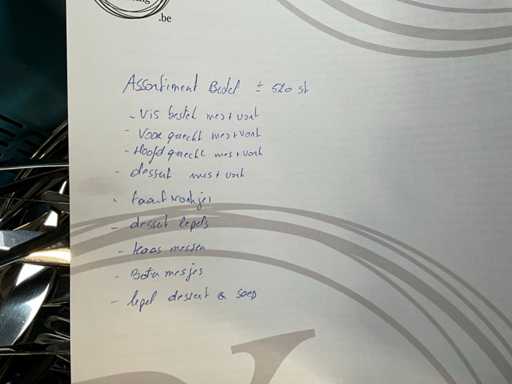 .be
Assortiment Bestek ± 520 st
- Vis bestek mes + vork
- Voor gerecht mes + vork
- Hoofd gerecht mes + vork
- dessert mes + vork
- taart vorkjes
- dessert lepels
- kaas messen
- Boter mesjes
- lepel dessert & soep